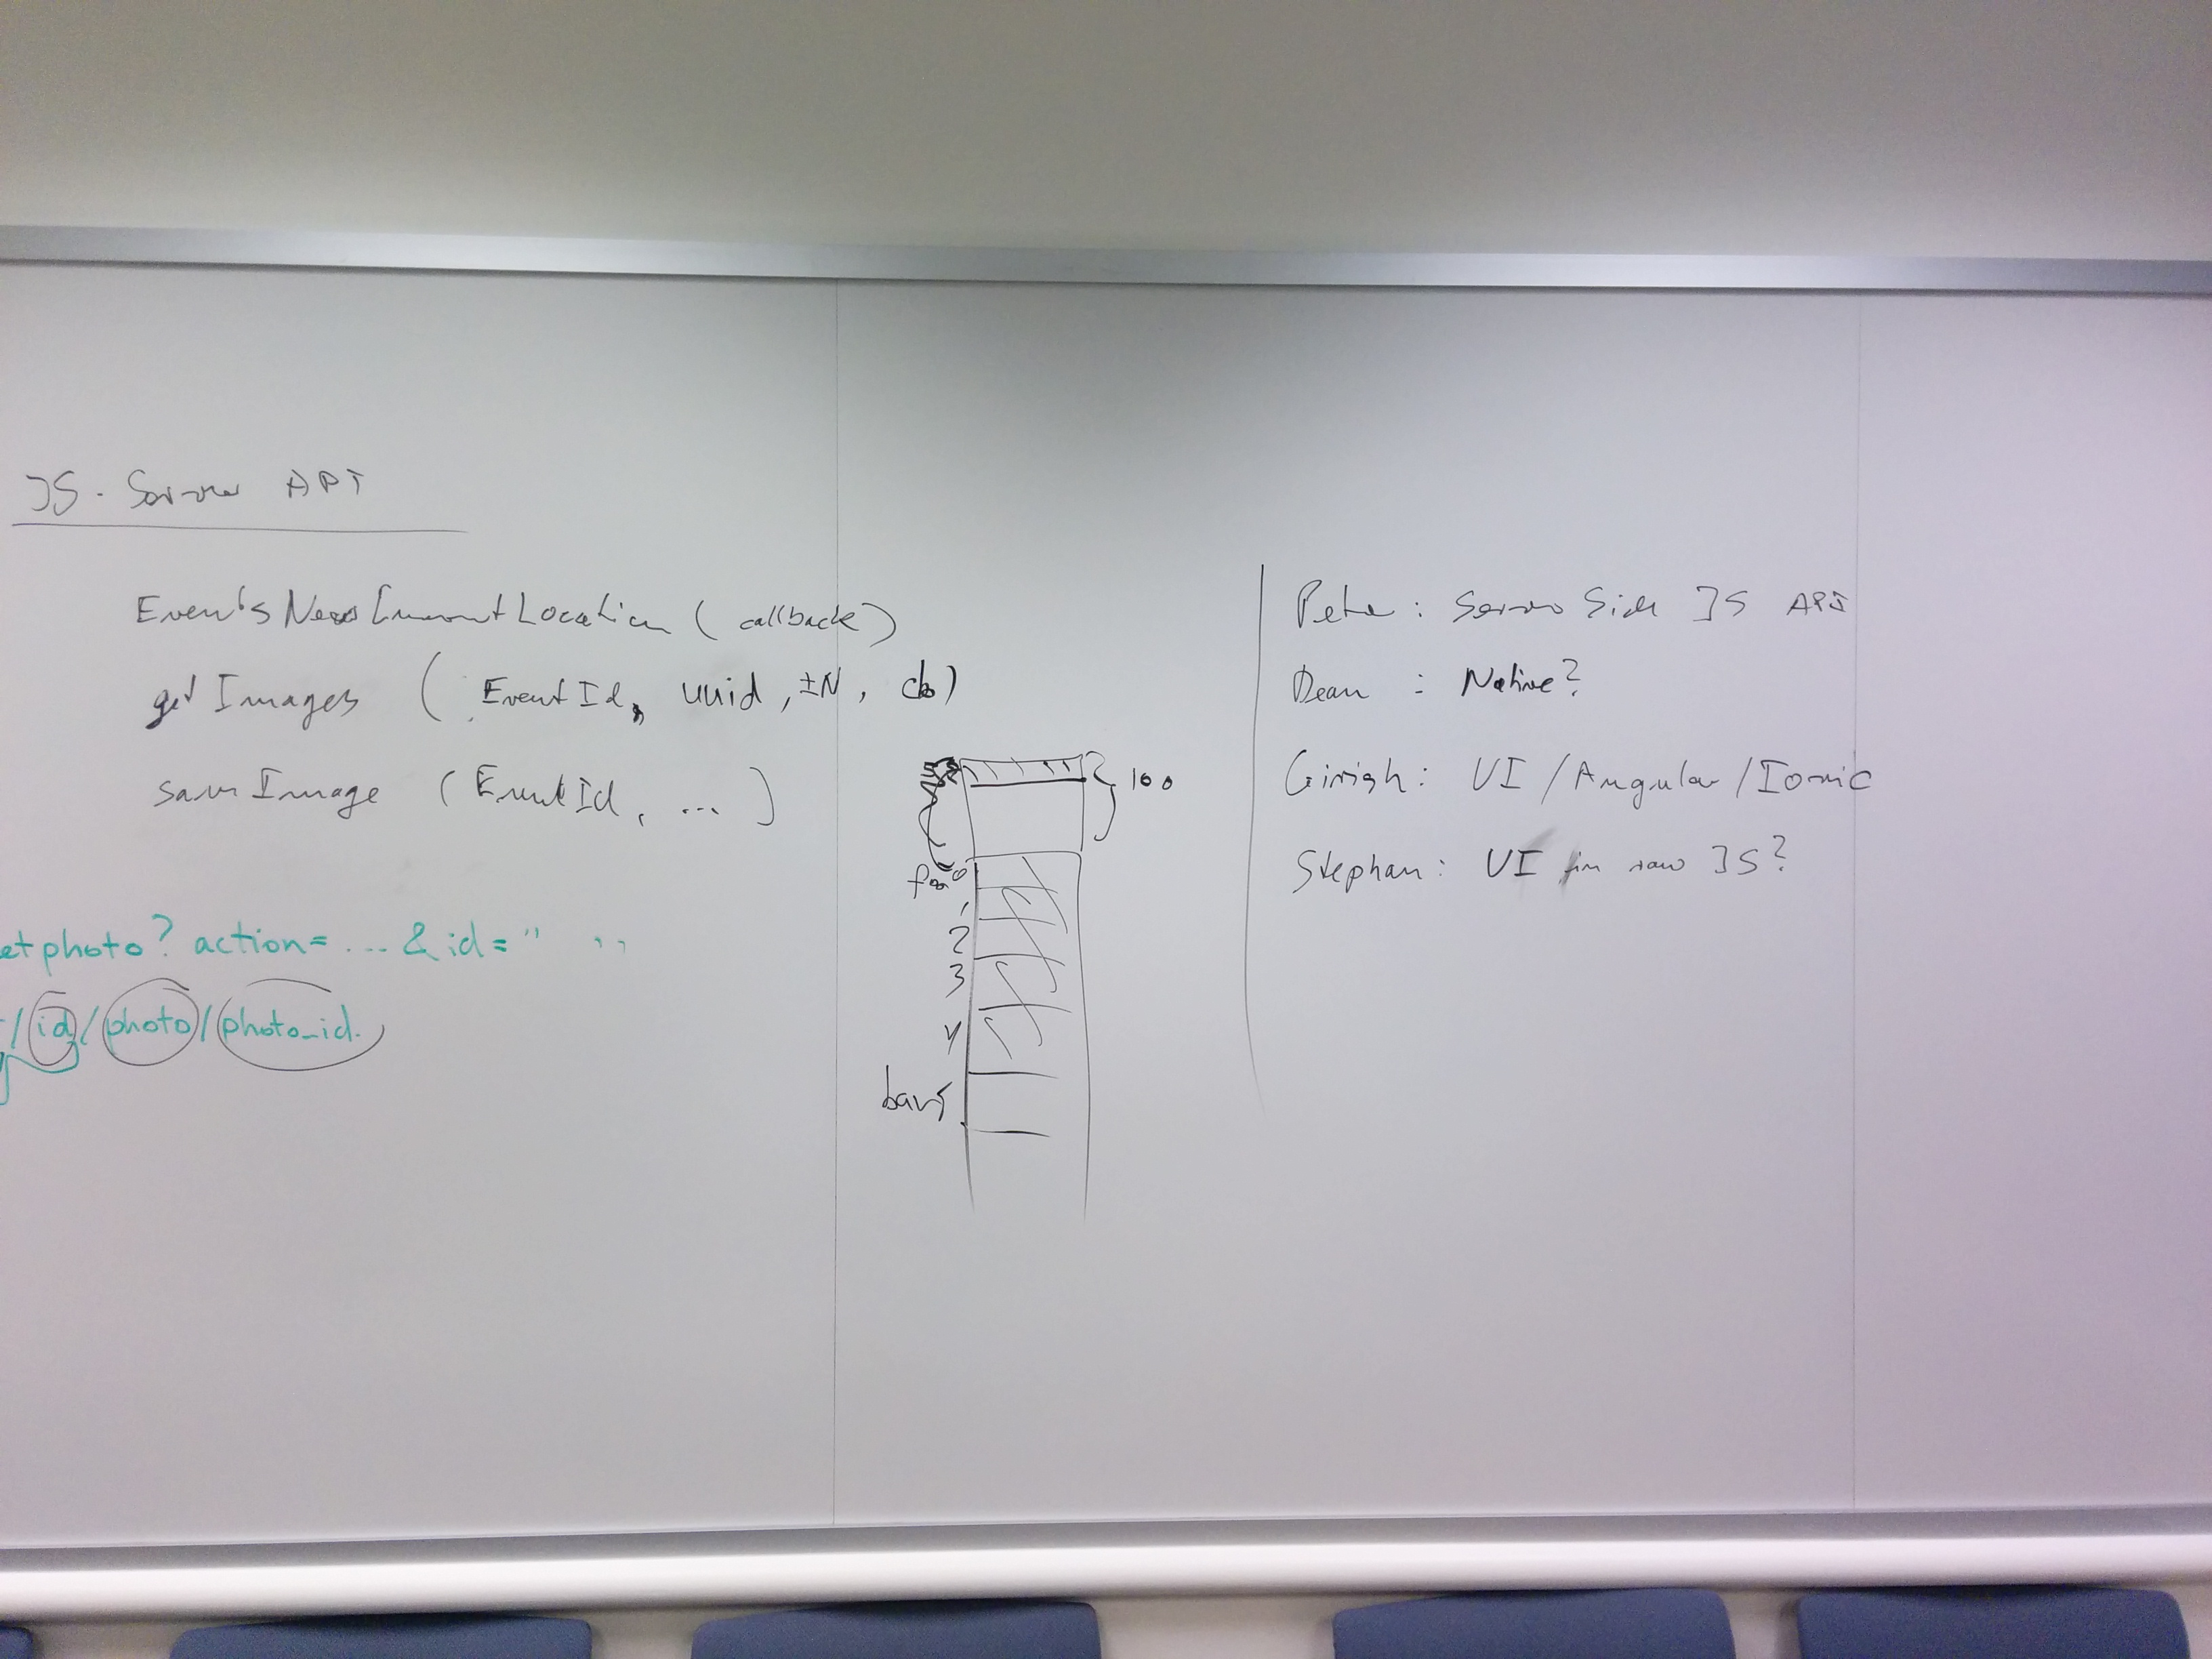 JS - Server API
EventsNearCurrentLocation ( callback )
getImages ( EventId, uuid, ±N, cb )
saveImage ( EventId, ... )
etphoto? action= ... & id= " "
/id/photo/photo_id.
100
foo 0
1
2
3
4
bar 5
Pete : Server Side JS API
Dean : Native?
Girish : UI / Angular / Ionic
Stephan : UI in raw JS?